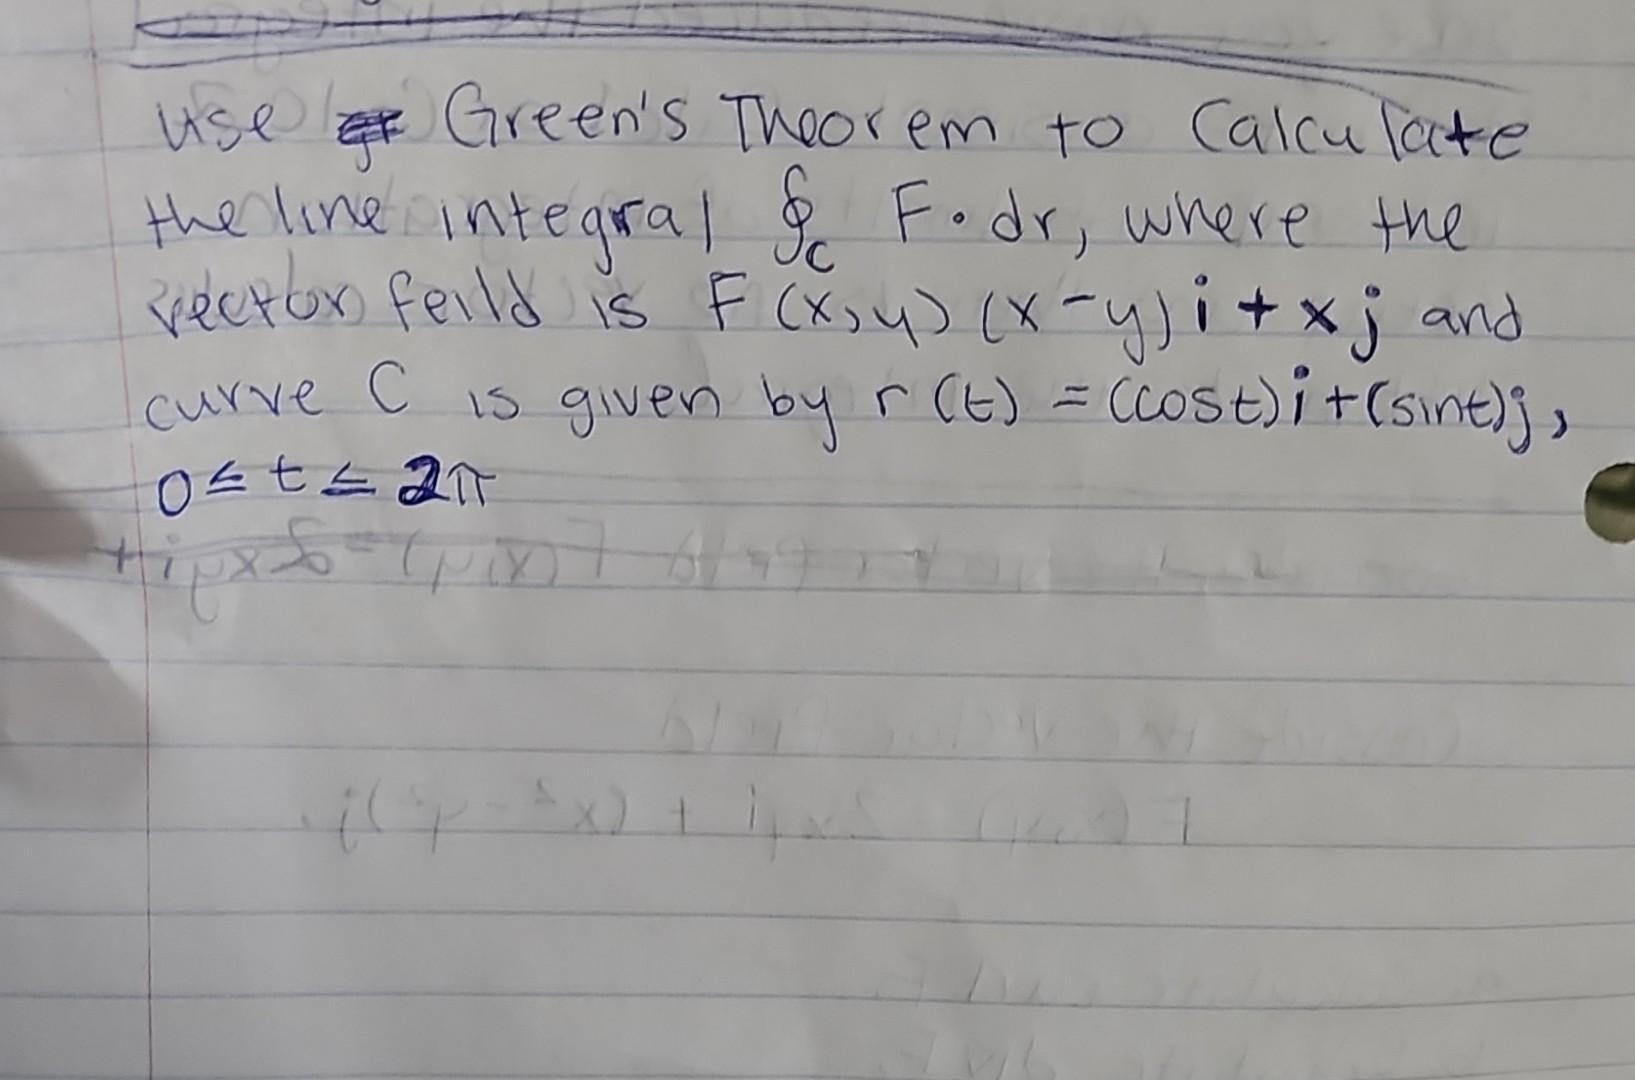 use Green's Theorem to Calculate
the line integral ∮c F • dr, where the
vector feild is F (x,y) (x-y) i + x j and
curve C is given by r (t) = (cost) i + (sint) j,
0 ≤ t ≤ 2π